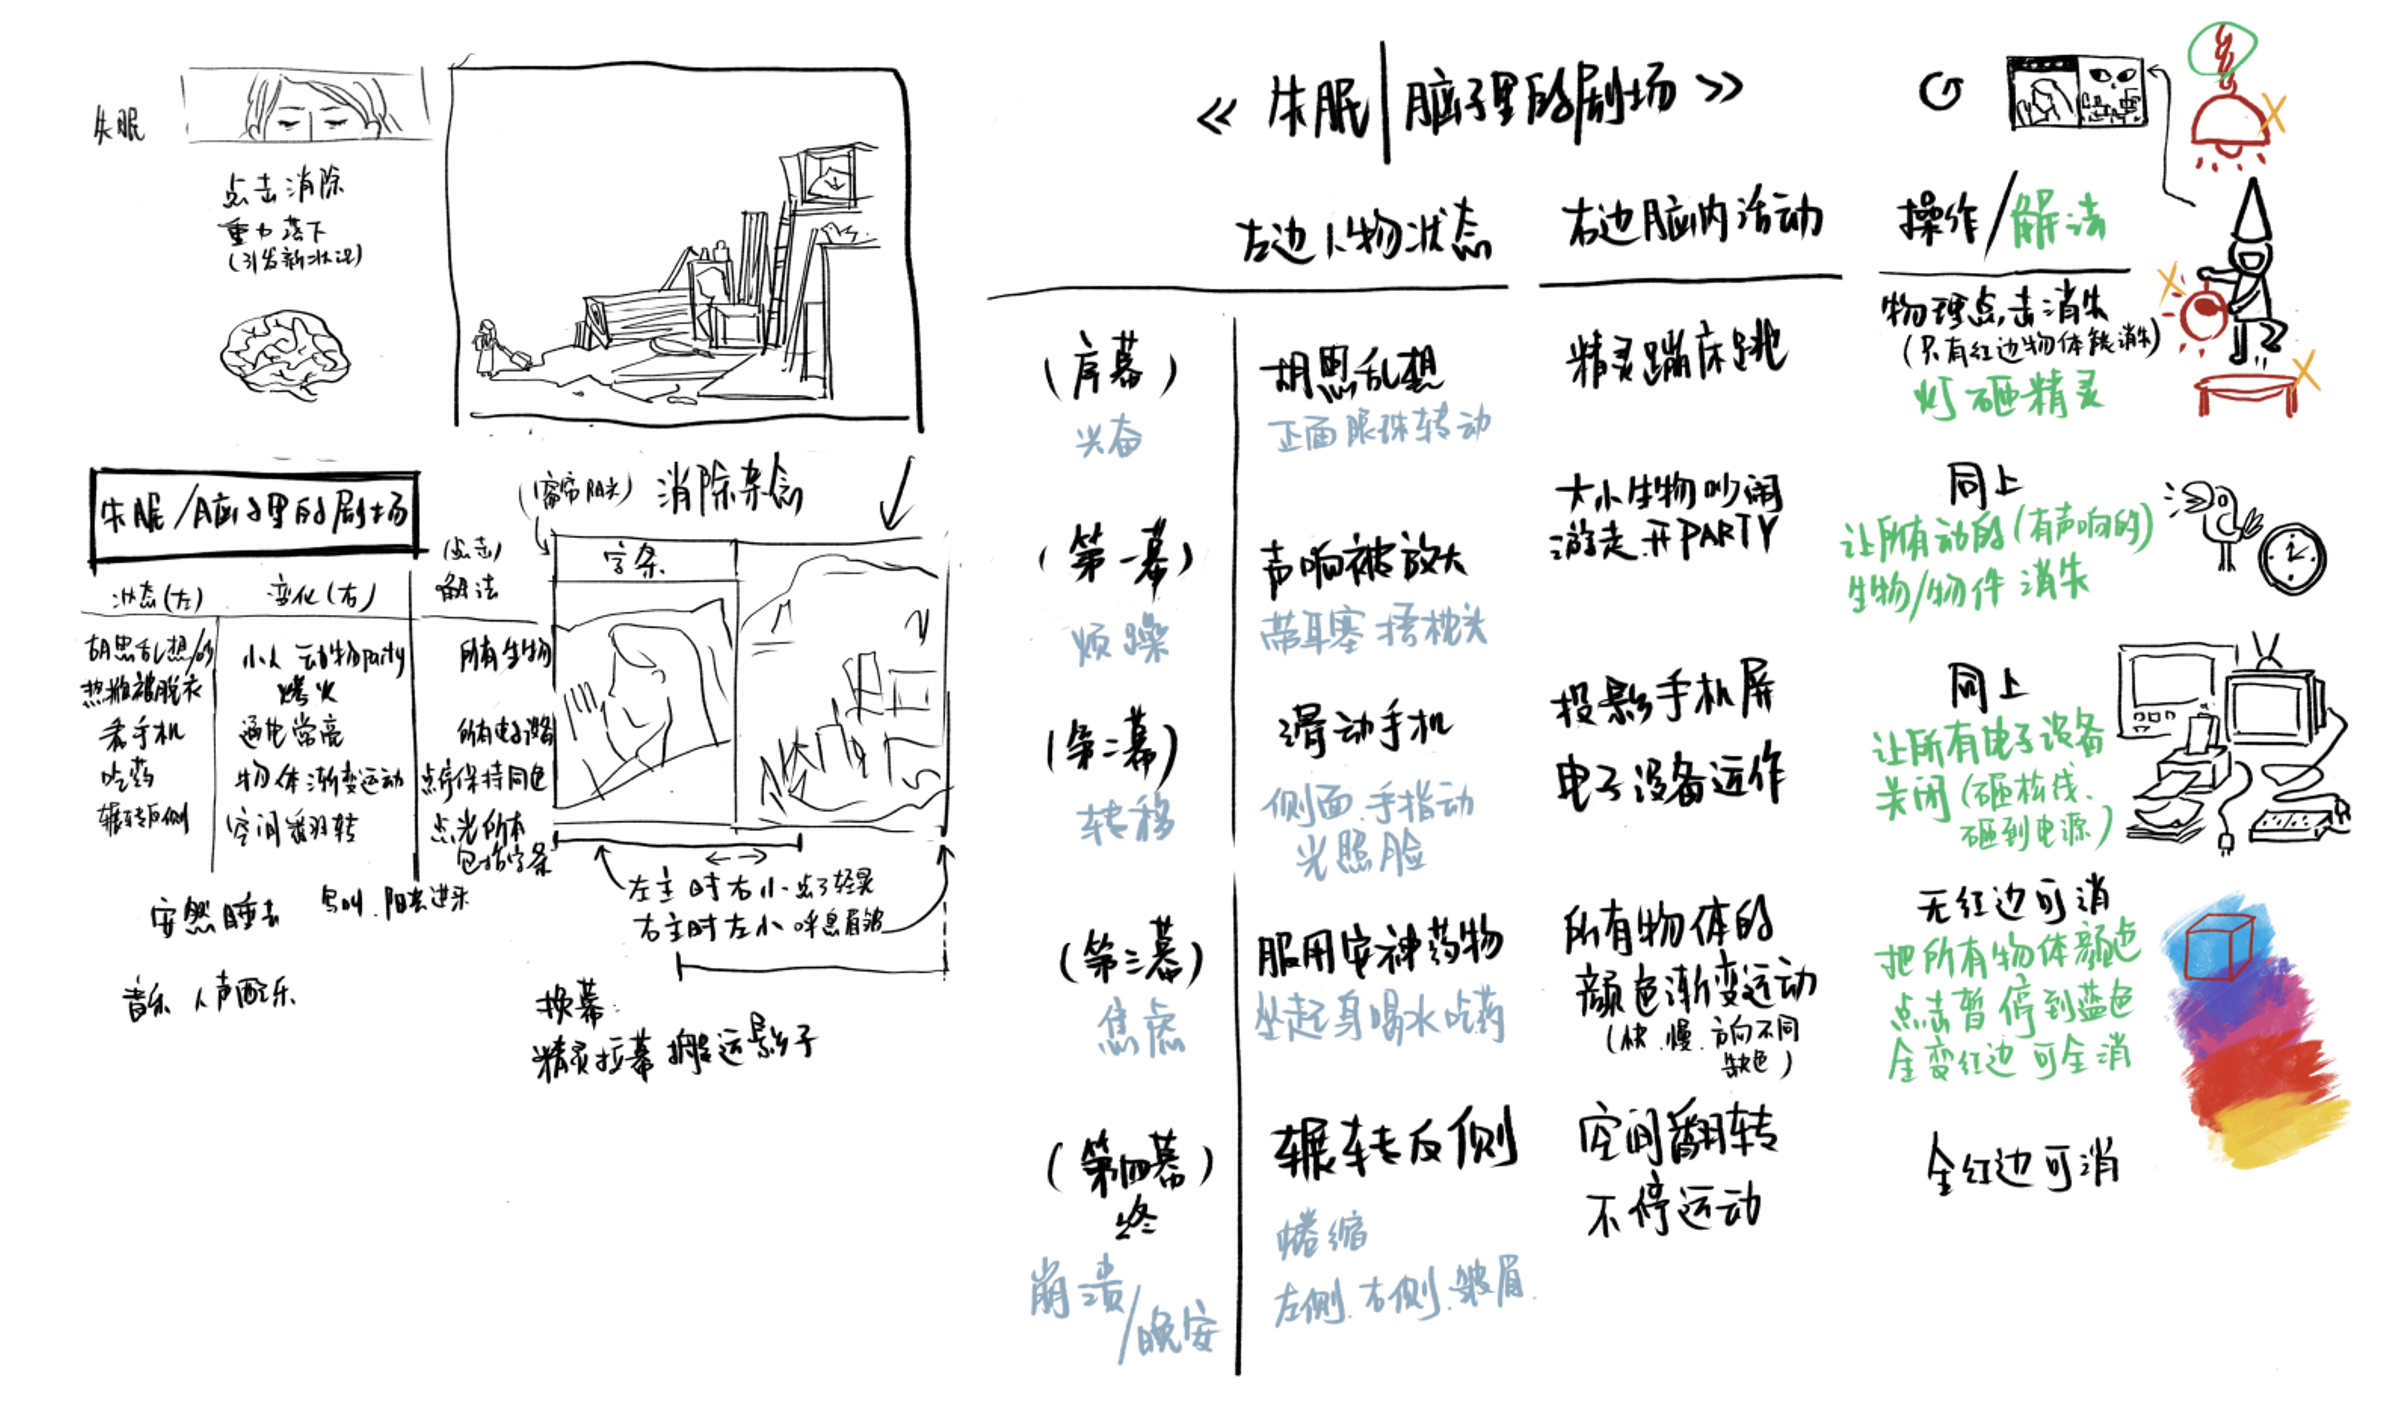 失眠
点击消除
重力落下
(引发新状况)
失眠/脑子里的剧场
状态(左)
变化(右)
(点击)
解法
胡思乱想/吵
小人 动物party
所有生物
热拖被脱衣
烤火
看手机
通电常亮
所有电子设备
吃药
物体渐变运动
点停保持同色
辗转反侧
空间翻转
点光所有
包括字条
安然睡去
鸟叫.阳光进来
音乐 人声配乐
(窗帘阳光)
消除杂念
字条
左主时右小.
右主时左小 呼息眉皱
换幕:
精灵拉幕 搬运影子
《失眠|脑子里的剧场》
左边人物状态
右边脑内活动
操作/解法
(序幕)
兴奋
胡思乱想
正面眼珠转动
精灵蹦床跳
物理点击消失
(只有红边物体能消失)
灯砸精灵
(第一幕)
烦躁
声响被放大
带耳塞 捂枕头
大小生物吵闹
游走.开PARTY
同上
让所有动的(有声响的)
生物/物件 消失
(第二幕)
转移
滑动手机
侧面.手指动
光照脸
投影手机屏
电子设备运作
同上
让所有电子设备
关闭(砸枕线、
砸到电源)
(第三幕)
焦虑
服用安神药物
坐起身喝水吃药
所有物体的
颜色渐变运动
(快.慢.方向不同
缺色)
无红边可消
把所有物体颜色
点击暂停到蓝色
全变红边可全消
(第四幕)
终
崩溃/晚安
辗转反侧
蜷缩
左侧.右侧.皱眉.
空间翻转
不停运动
全红边可消